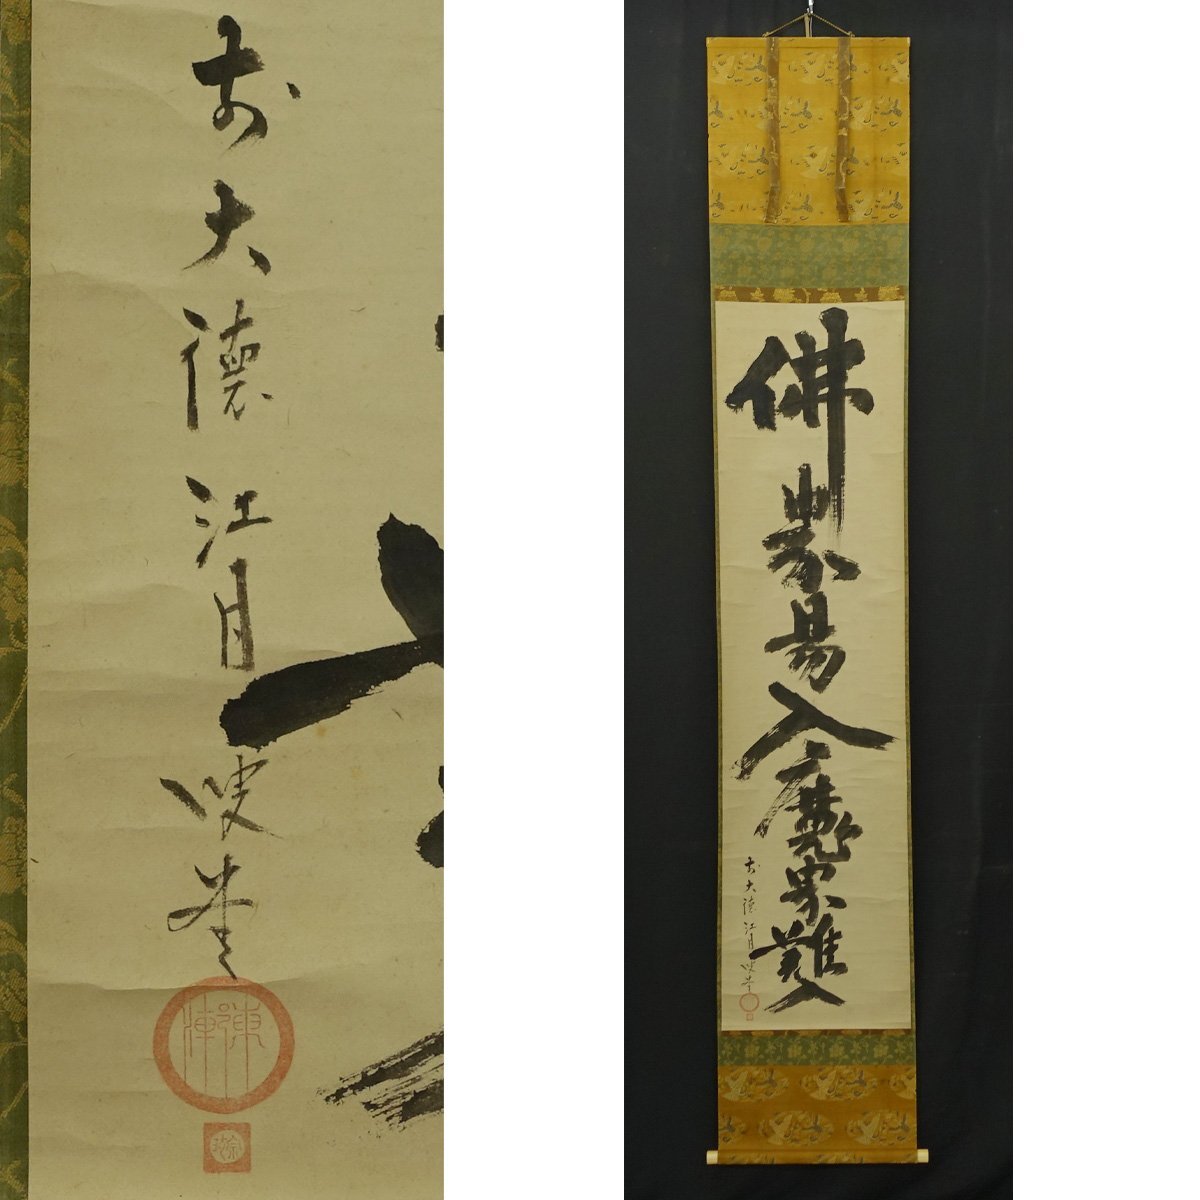 前大德江月叟書
佛界易入魔界難入
前大德江月叟書